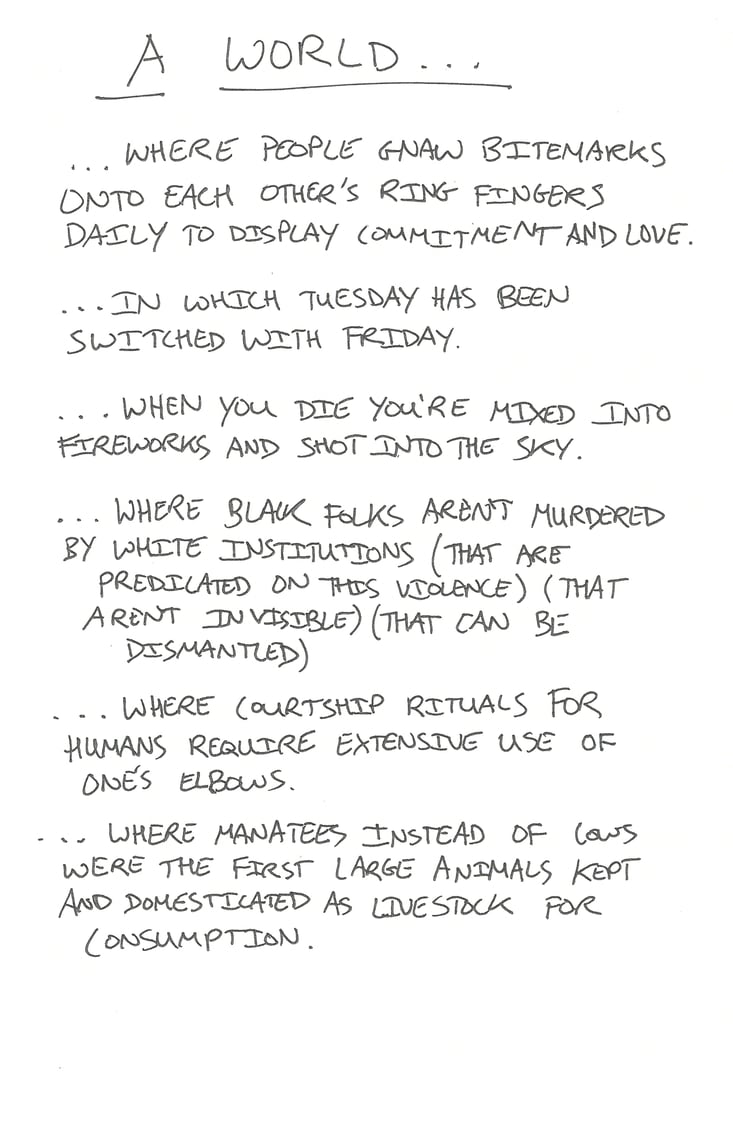 A WORLD...
...WHERE PEOPLE GNAW BITEMARKS
ONTO EACH OTHER'S RING FINGERS
DAILY TO DISPLAY COMMITMENT AND LOVE.
...IN WHICH TUESDAY HAS BEEN
SWITCHED WITH FRIDAY.
...WHEN YOU DIE YOU'RE MIXED INTO
FIREWORKS AND SHOT INTO THE SKY.
...WHERE BLACK FOLKS ARENT MURDERED
BY WHITE INSTITUTIONS (THAT ARE
PREDICATED ON THIS VIOLENCE) (THAT
ARENT INVISIBLE) (THAT CAN BE
DISMANTLED)
...WHERE COURTSHIP RITUALS FOR
HUMANS REQUIRE EXTENSIVE USE OF
ONE'S ELBOWS.
...WHERE MANATEES INSTEAD OF COWS
WERE THE FIRST LARGE ANIMALS KEPT
AND DOMESTICATED AS LIVESTOCK FOR
CONSUMPTION.